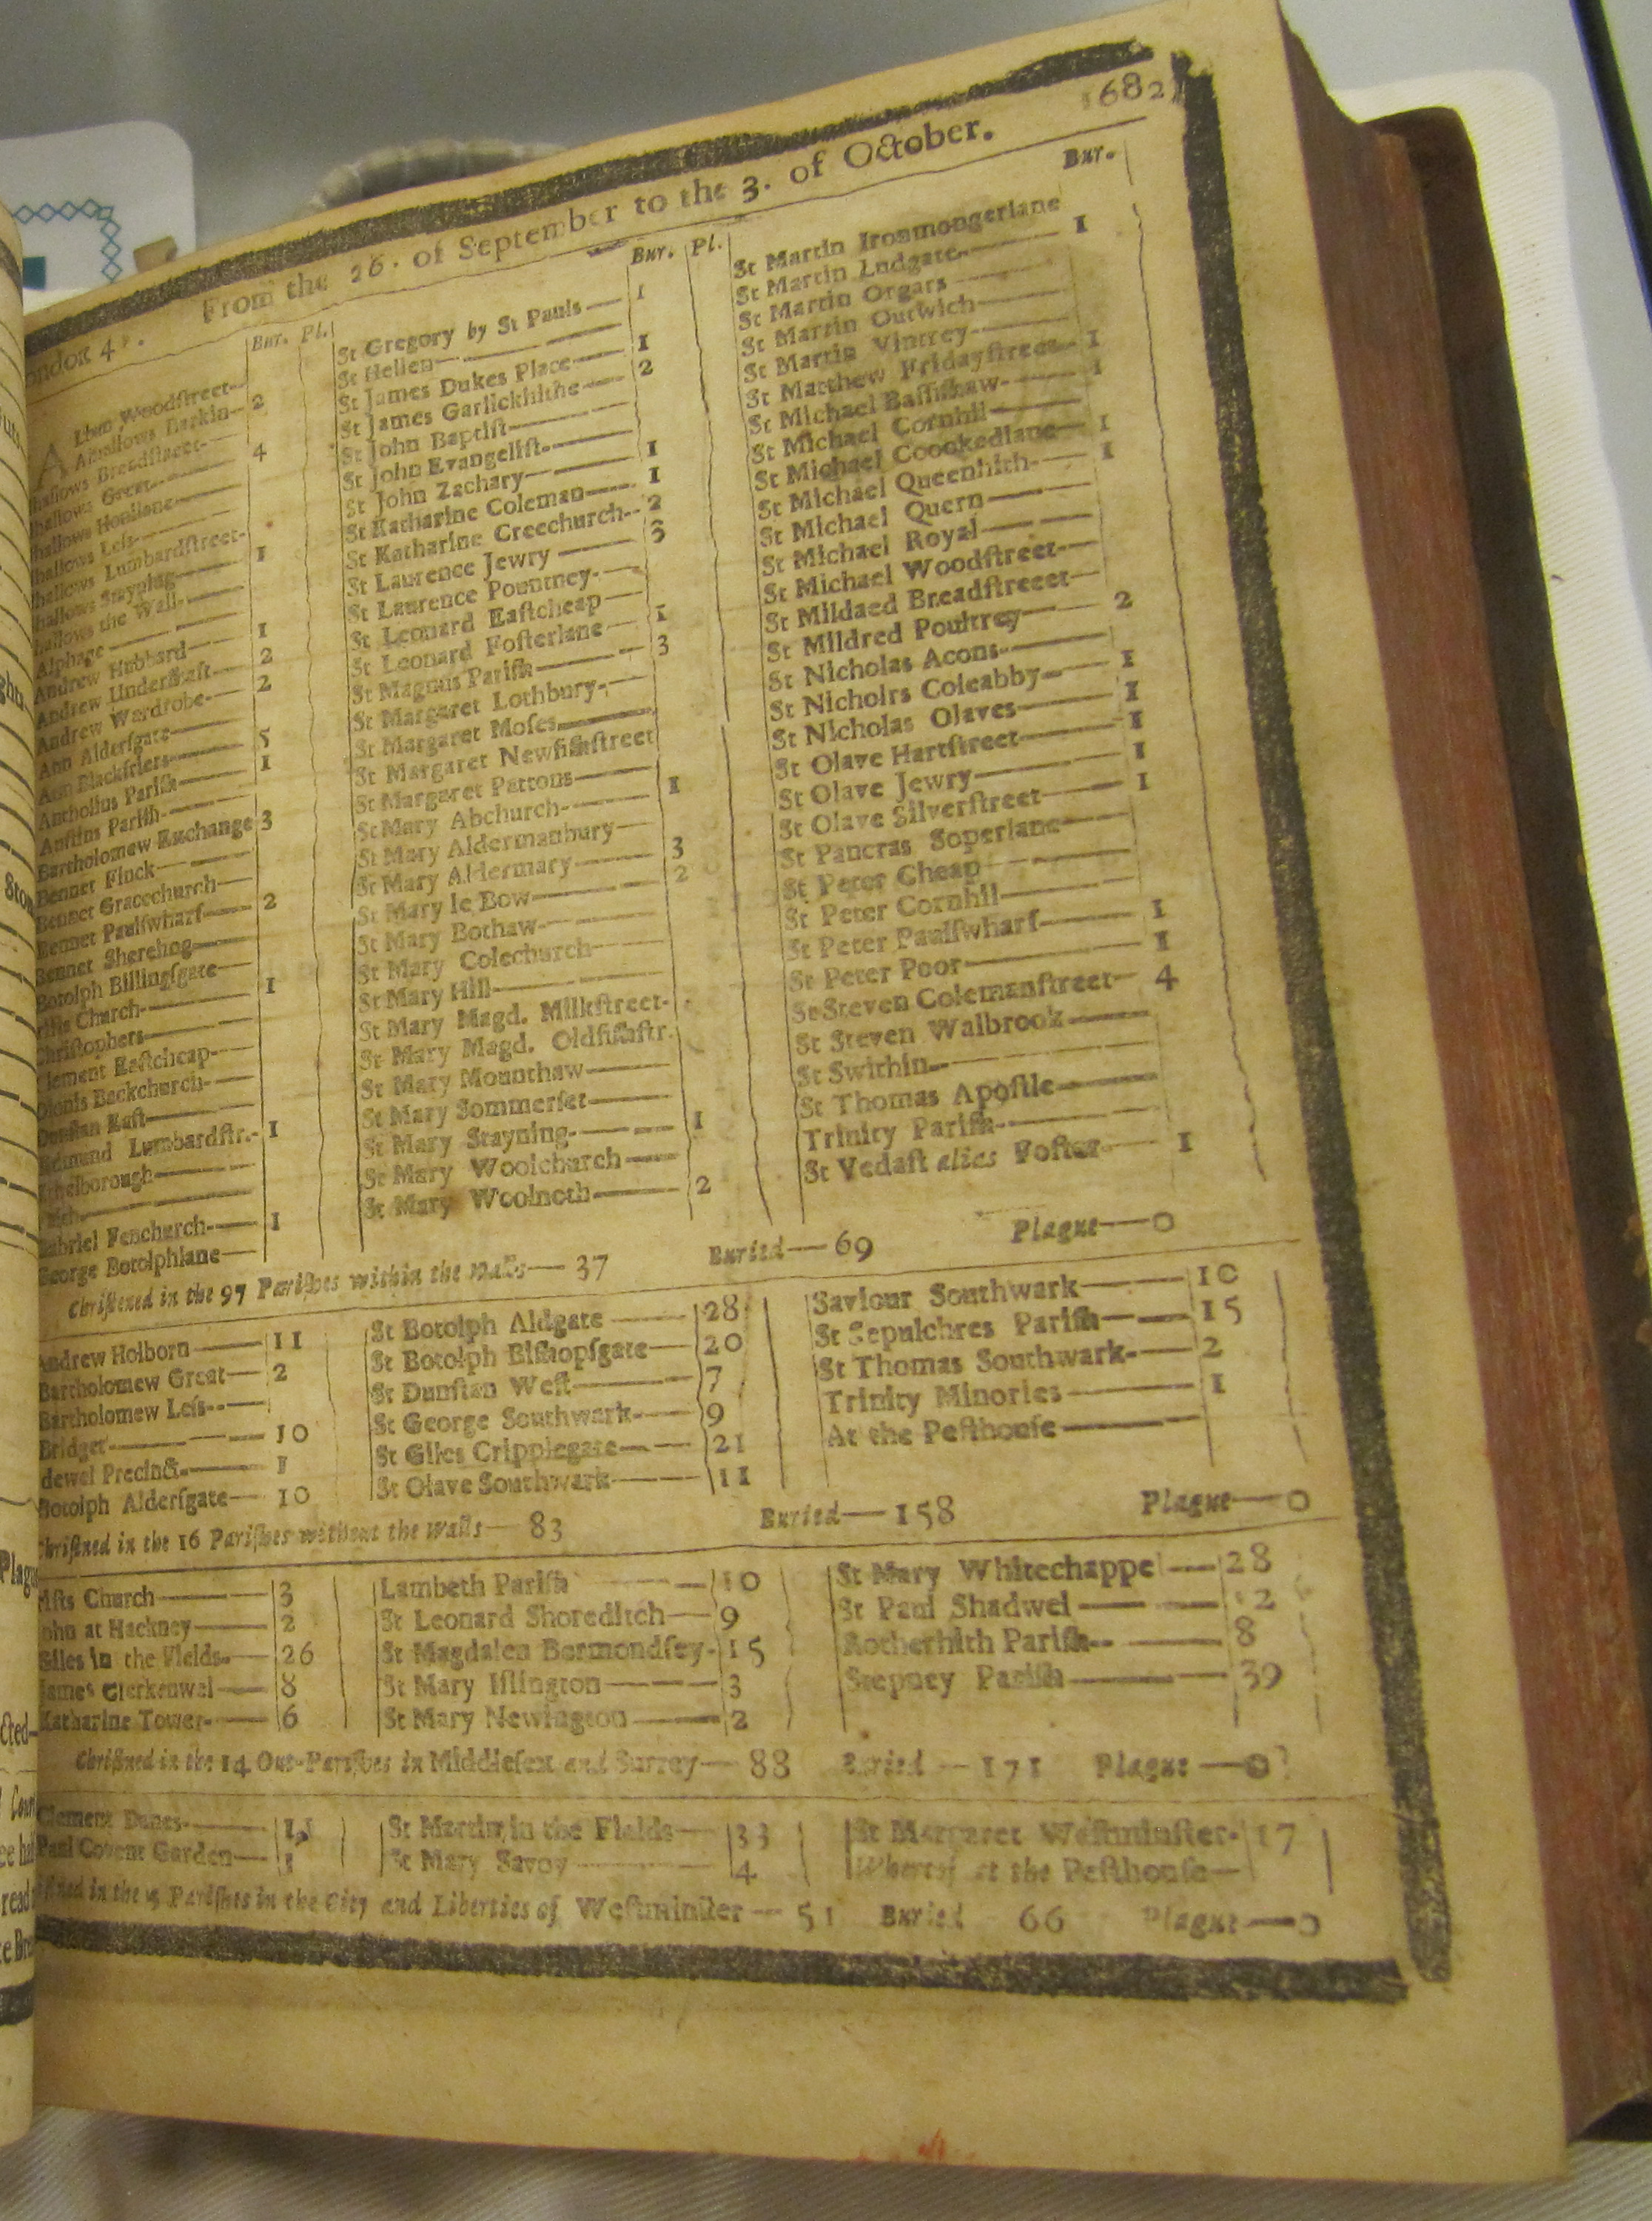 1682
From the 26. of September to the 3. of October.
Bur. Pl.
Lban Woodſtreet
Alhallows Barkin 2
hallows Breadſtreet
hallows Great 4
hallows Honilane
hallows Leſs
hallows Lumbardſtreet 1
hallows Stayning
hallows the Wall
Alphage 1
Andrew Hubbard 2
Andrew Underſhaft 2
Andrew Wardrobe
Ann Alderſgate 5
Ann Blackfriers 1
Antholius Pariſh
Auſtins Pariſh
Bartholomew Exchange 3
Bennet Finck
Bennet Gracechurch
Bennet Paulſwharf 2
Bennet Sherehog
Botolph Billingſgate
Church 1
Chriſtophers
lement Eaſtcheap
Dionis Backchurch
Dunſtan Eaſt
Edmund Lumbardſtr. 1
thelborough
aith
Gabriel Fenchurch 1
George Botolphlane
Bur. Pl.
St Gregory by St Pauls 1
St Hellen
St James Dukes Place 1
St James Garlickhithe 2
St John Baptiſt
St John Evangeliſt
St John Zachary 1
St Katharine Coleman 1
St Katharine Creechurch 2
St Laurence Jewry 3
St Laurence Pountney
St Leonard Eaſtcheap
St Leonard Foſterlane 1
St Magnus Pariſh 3
St Margaret Lothbury
St Margaret Moſes
St Margaret Newfiſhſtreet
St Margaret Pattons
St Mary Abchurch 1
St Mary Aldermanbury
St Mary Aldermary 3
St Mary le Bow 2
St Mary Bothaw
St Mary Colechurch
St Mary Hill
St Mary Magd. Milkſtreet
St Mary Magd. Oldfiſhſtr.
St Mary Mounthaw
St Mary Sommerſet
St Mary Stayning 1
St Mary Woolchurch
St Mary Woolnoth 2
Bur.
St Martin Ironmongerlane
St Martin Ludgate 1
St Martin Orgars
St Martin Outwich
St Martin Vintrey
St Matthew Fridayſtreet 1
St Michael Baſſiſhaw 1
St Michael Cornhil
St Michael Coookedlane 1
St Michael Queenhith 1
St Michael Quern
St Michael Royal
St Michael Woodſtreet
St Mildaed Breadſtreeet
St Mildred Poultrey 2
St Nicholas Acons
St Nicholrs Coleabby 1
St Nicholas Olaves 1
St Olave Hartſtreet 1
St Olave Jewry 1
St Olave Silverſtreet 1
St Pancras Soperlane
St Peter Cheap
St Peter Cornhil
St Peter Paulſwharf 1
St Peter Poor 1
St Steven Colemanſtreet 4
St Steven Walbrook
St Swithin
St Thomas Apoſtle
Trinity Pariſh
St Vedaſt alias Foſter 1
Chriſtened in the 97 Pariſhes within the Walls— 37 Buried— 69 Plague—0
Andrew Holborn 11
Bartholomew Great 2
Bartholomew Leſs
Bridget 10
dewel Precinct 1
Botolph Alderſgate 10
St Botolph Aldgate 28
St Botolph Biſhopſgate 20
St Dunſtan Weſt 7
St George Southwark 9
St Giles Cripplegate 21
St Olave Southwark 11
Saviour Southwark 10
St Sepulchres Pariſh 15
St Thomas Southwark 2
Trinity Minories 1
At the Peſthouſe
Chriſtned in the 16 Pariſhes without the Walls— 83 Buried—158 Plague—0
riſts Church 3
ohn at Hackney 2
Giles in the Fields 26
James Clerkenwel 8
Katharine Tower 6
Lambeth Pariſh 10
St Leonard Shoreditch 9
St Magdalen Bermondſey 15
St Mary Iſlington 3
St Mary Newington 2
St Mary Whitechappel 28
St Paul Shadwel
Rotherhith Pariſh 8
Stepney Pariſh 39
Chriſtned in the 14 Out-Pariſhes in Middleſex and Surrey— 88 Buried—171 Plague—0
Clement Danes 11
Paul Covent Garden 1
St Martin in the Fields 33
St Mary Savoy 4
St Margaret Weſtminſter 17
Whereof at the Peſthouſe
in the 5 Pariſhes in the City and Liberties of Weſtminſter— 51 Buried 66 Plague—0